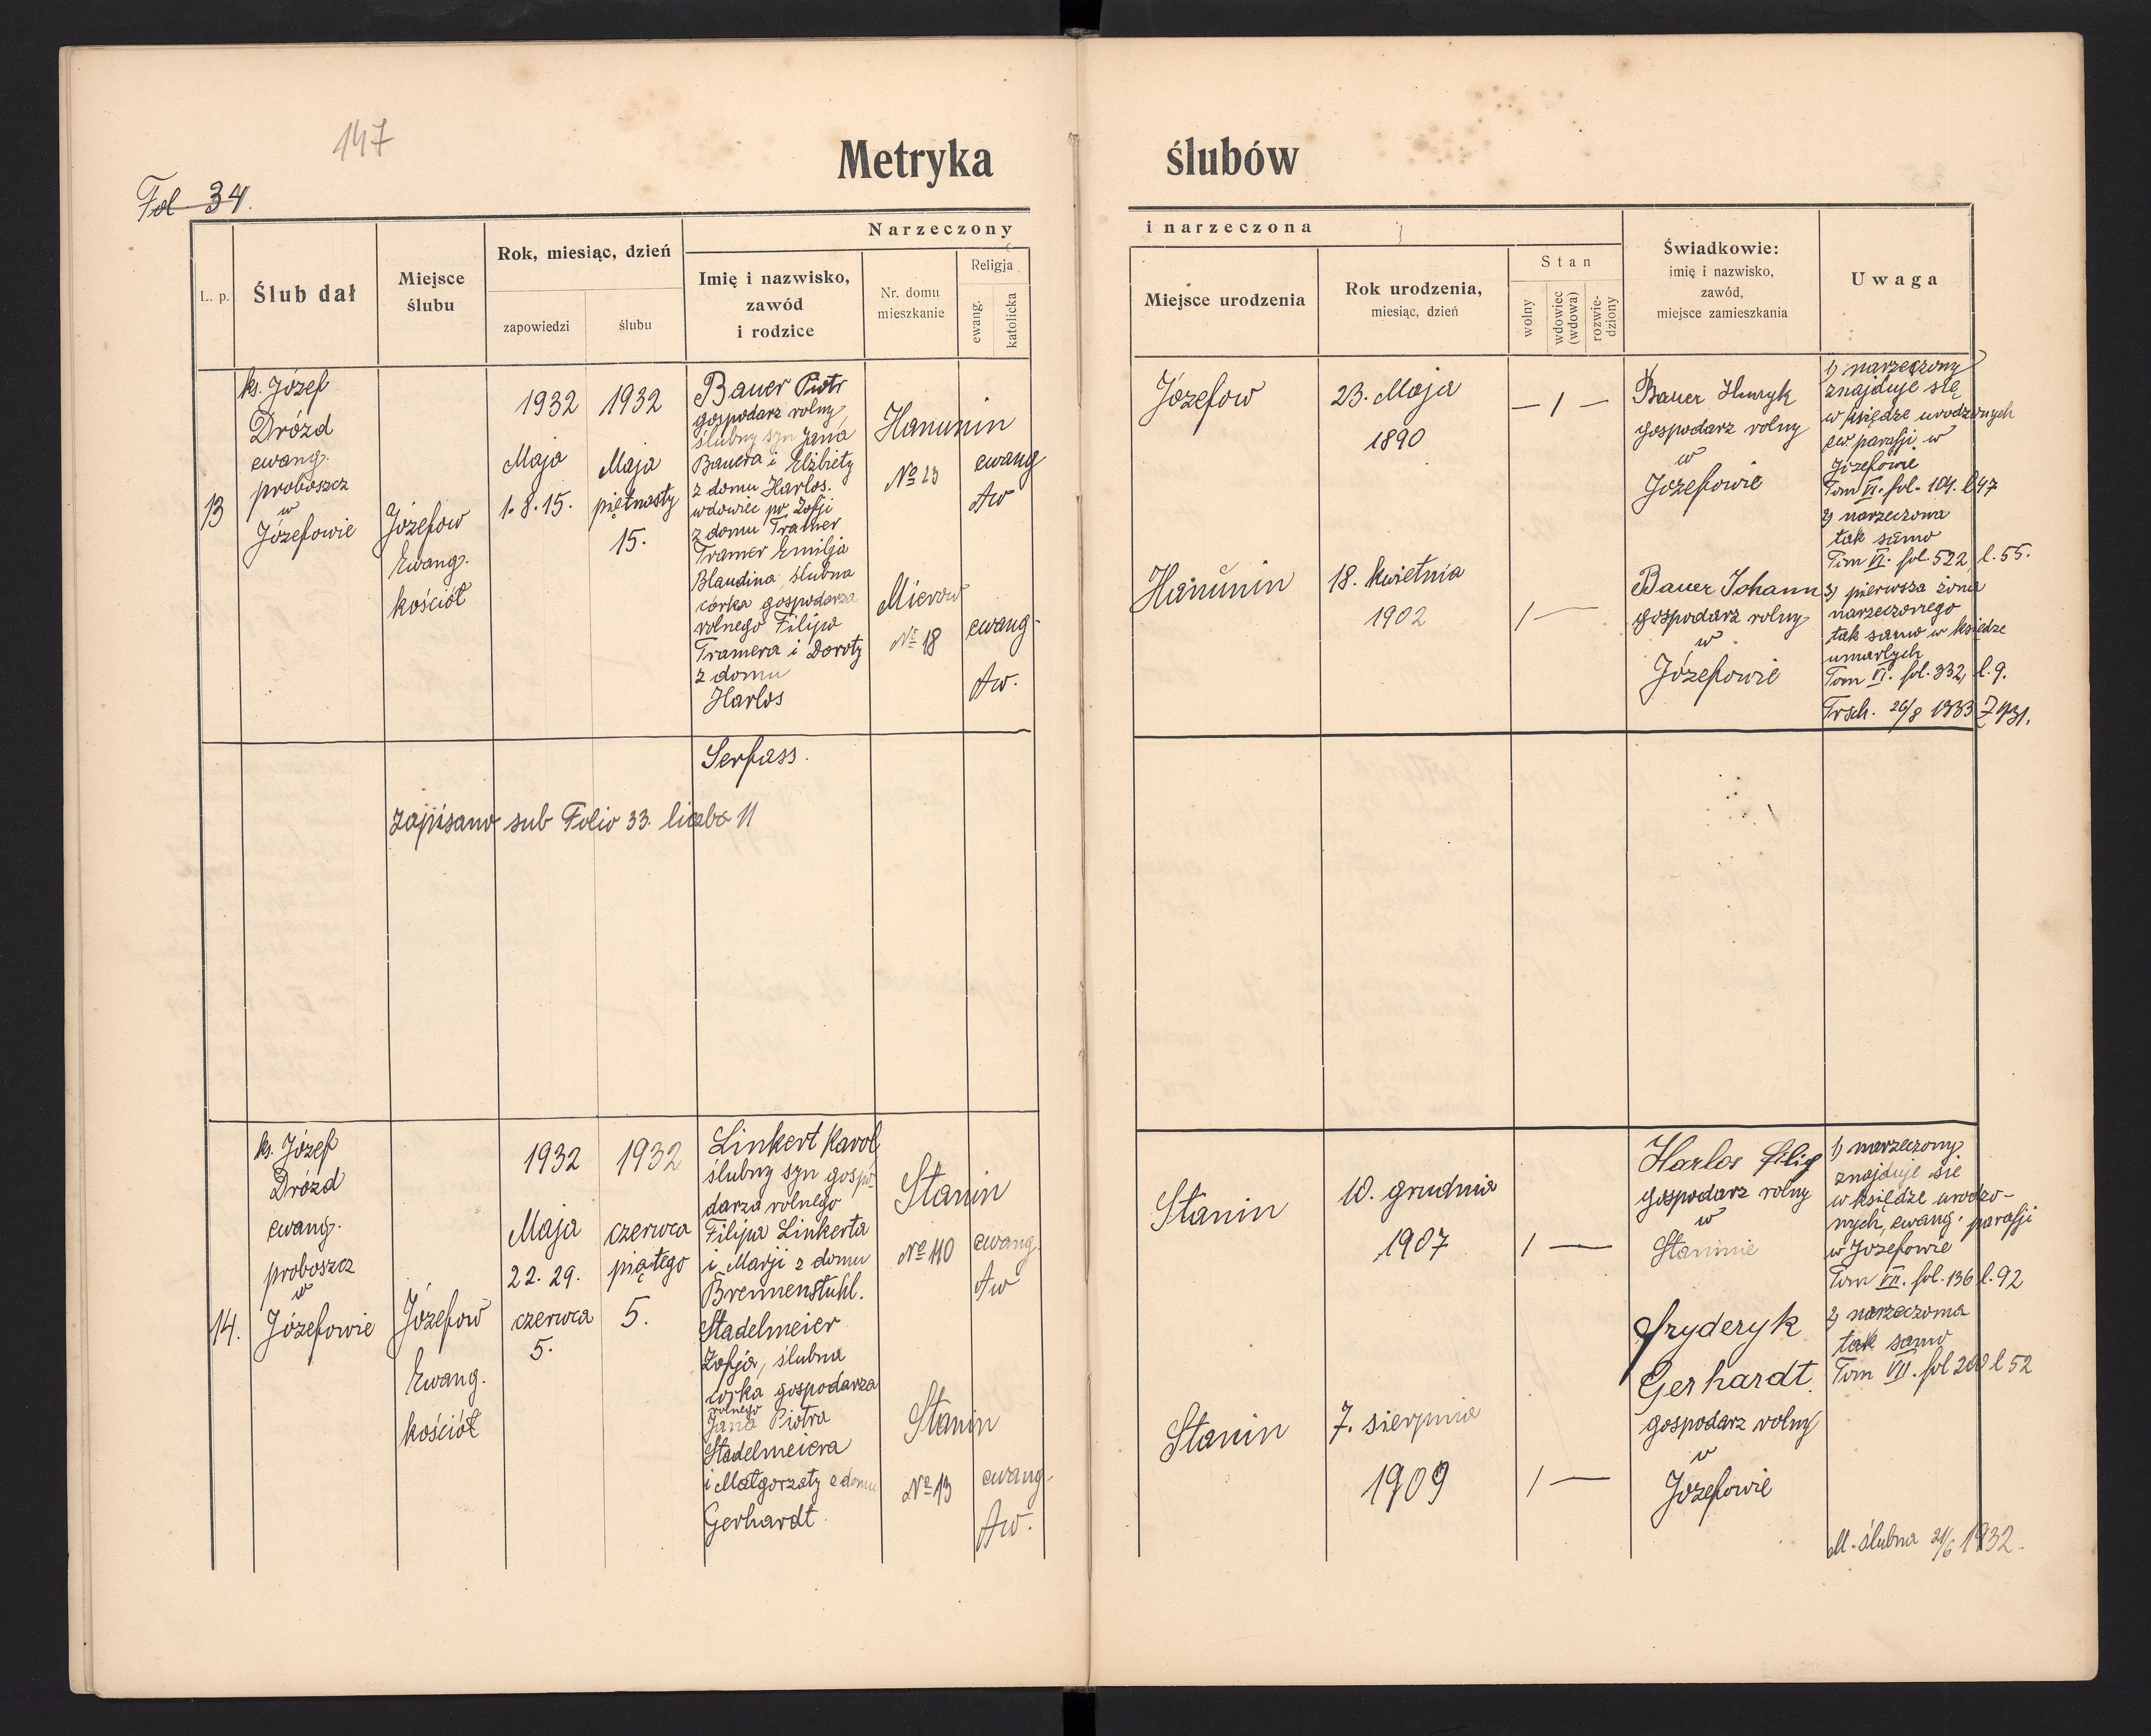 147
Metryka ślubów
Fol 34.
Narzeczony
i narzeczona
L. p.
Ślub dał
Miejsce
ślubu
Rok, miesiąc, dzień
zapowiedzi
ślubu
Imię i nazwisko,
zawód
i rodzice
Nr. domu
mieszkanie
Religja
ewang.
katolicka
Miejsce urodzenia
Rok urodzenia,
miesiąc, dzień
Stan
wolny
wdowiec
(wdowa)
rozwie-
dziony
Świadkowie:
imię i nazwisko,
zawód,
miejsce zamieszkania
Uwaga
13
ks. Józef
Drózd
ewang.
proboszcz
w
Józefowie
Józefow
Ewang.
kościół
1932
Maja
1. 8. 15.
1932
Maja
piętnasty
15.
Bauer Piotr
gospodarz rolny
ślubny syn Jana
Bauera i Elżbiety
z domu Harlos.
wdowiec po Zofji
z domu Tramer
Tramer Emilja
Blaudina ślubna
córka gospodarza
rolnego Filipa
Tramera i Doroty
z domu
Harlos
Hanunin
No 23
Mierow
No 18
ewang
Aw
ewang.
Aw.
Józefow
23. Maja
1890
— 1 —
Hanunin
18. kwietnia
1902
1 —
Bauer Henryk
gospodarz rolny
w
Józefowie
Bauer Johann
gospodarz rolny
w
Józefowie
1) narzeczony
znajduje się
w księdze urodzonych
ew. parafji w
Józefowie
Tom VI. fol. 101. l 47
2) narzeczona
tak samo
Tom VI. fol. 522, l. 55.
3) pierwsza żona
narzeczonego
tak samo w księdze
umarłych
Tom VI. fol. 332, l. 9.
Trsch. 26/8 1933 Z 431.
Serfass.
zapisano sub Folio 33. liczba 11
14.
ks. Józef
Drózd
ewang.
proboszcz
w
Józefowie
Józefow
Ewang.
kościół
1932
Maja
22. 29.
czerwca
5.
1932
czerwca
piątego
5.
Linkert Karol
ślubny syn gospo-
darza rolnego
Filipa Linkerta
i Marji z domu
Brennenstuhl.
Stadelmeier
Zofja, ślubna
córka gospodarza
rolnego
Jana Piotra
Stadelmeiera
i Małgorzaty z domu
Gerhardt.
Stanin
No 110
Stanin
No 13
ewang.
Aw
ewang.
Aw.
Stanin
10. grudnia
1907
1 —
Stanin
7. sierpnia
1909
1 —
Harlos Filip
gospodarz rolny
w
Staninie
Fryderyk
Gerhardt.
gospodarz rolny
w
Józefowie
1) narzeczony
znajduje sie
w księdze urodzo-
nych, ewang. parafji
w Józefowie
Tom VII. fol. 136 l. 92
2) narzeczona
tak samo
Tom VII. fol 200 l 52
M. ślubna 21/6 1932.